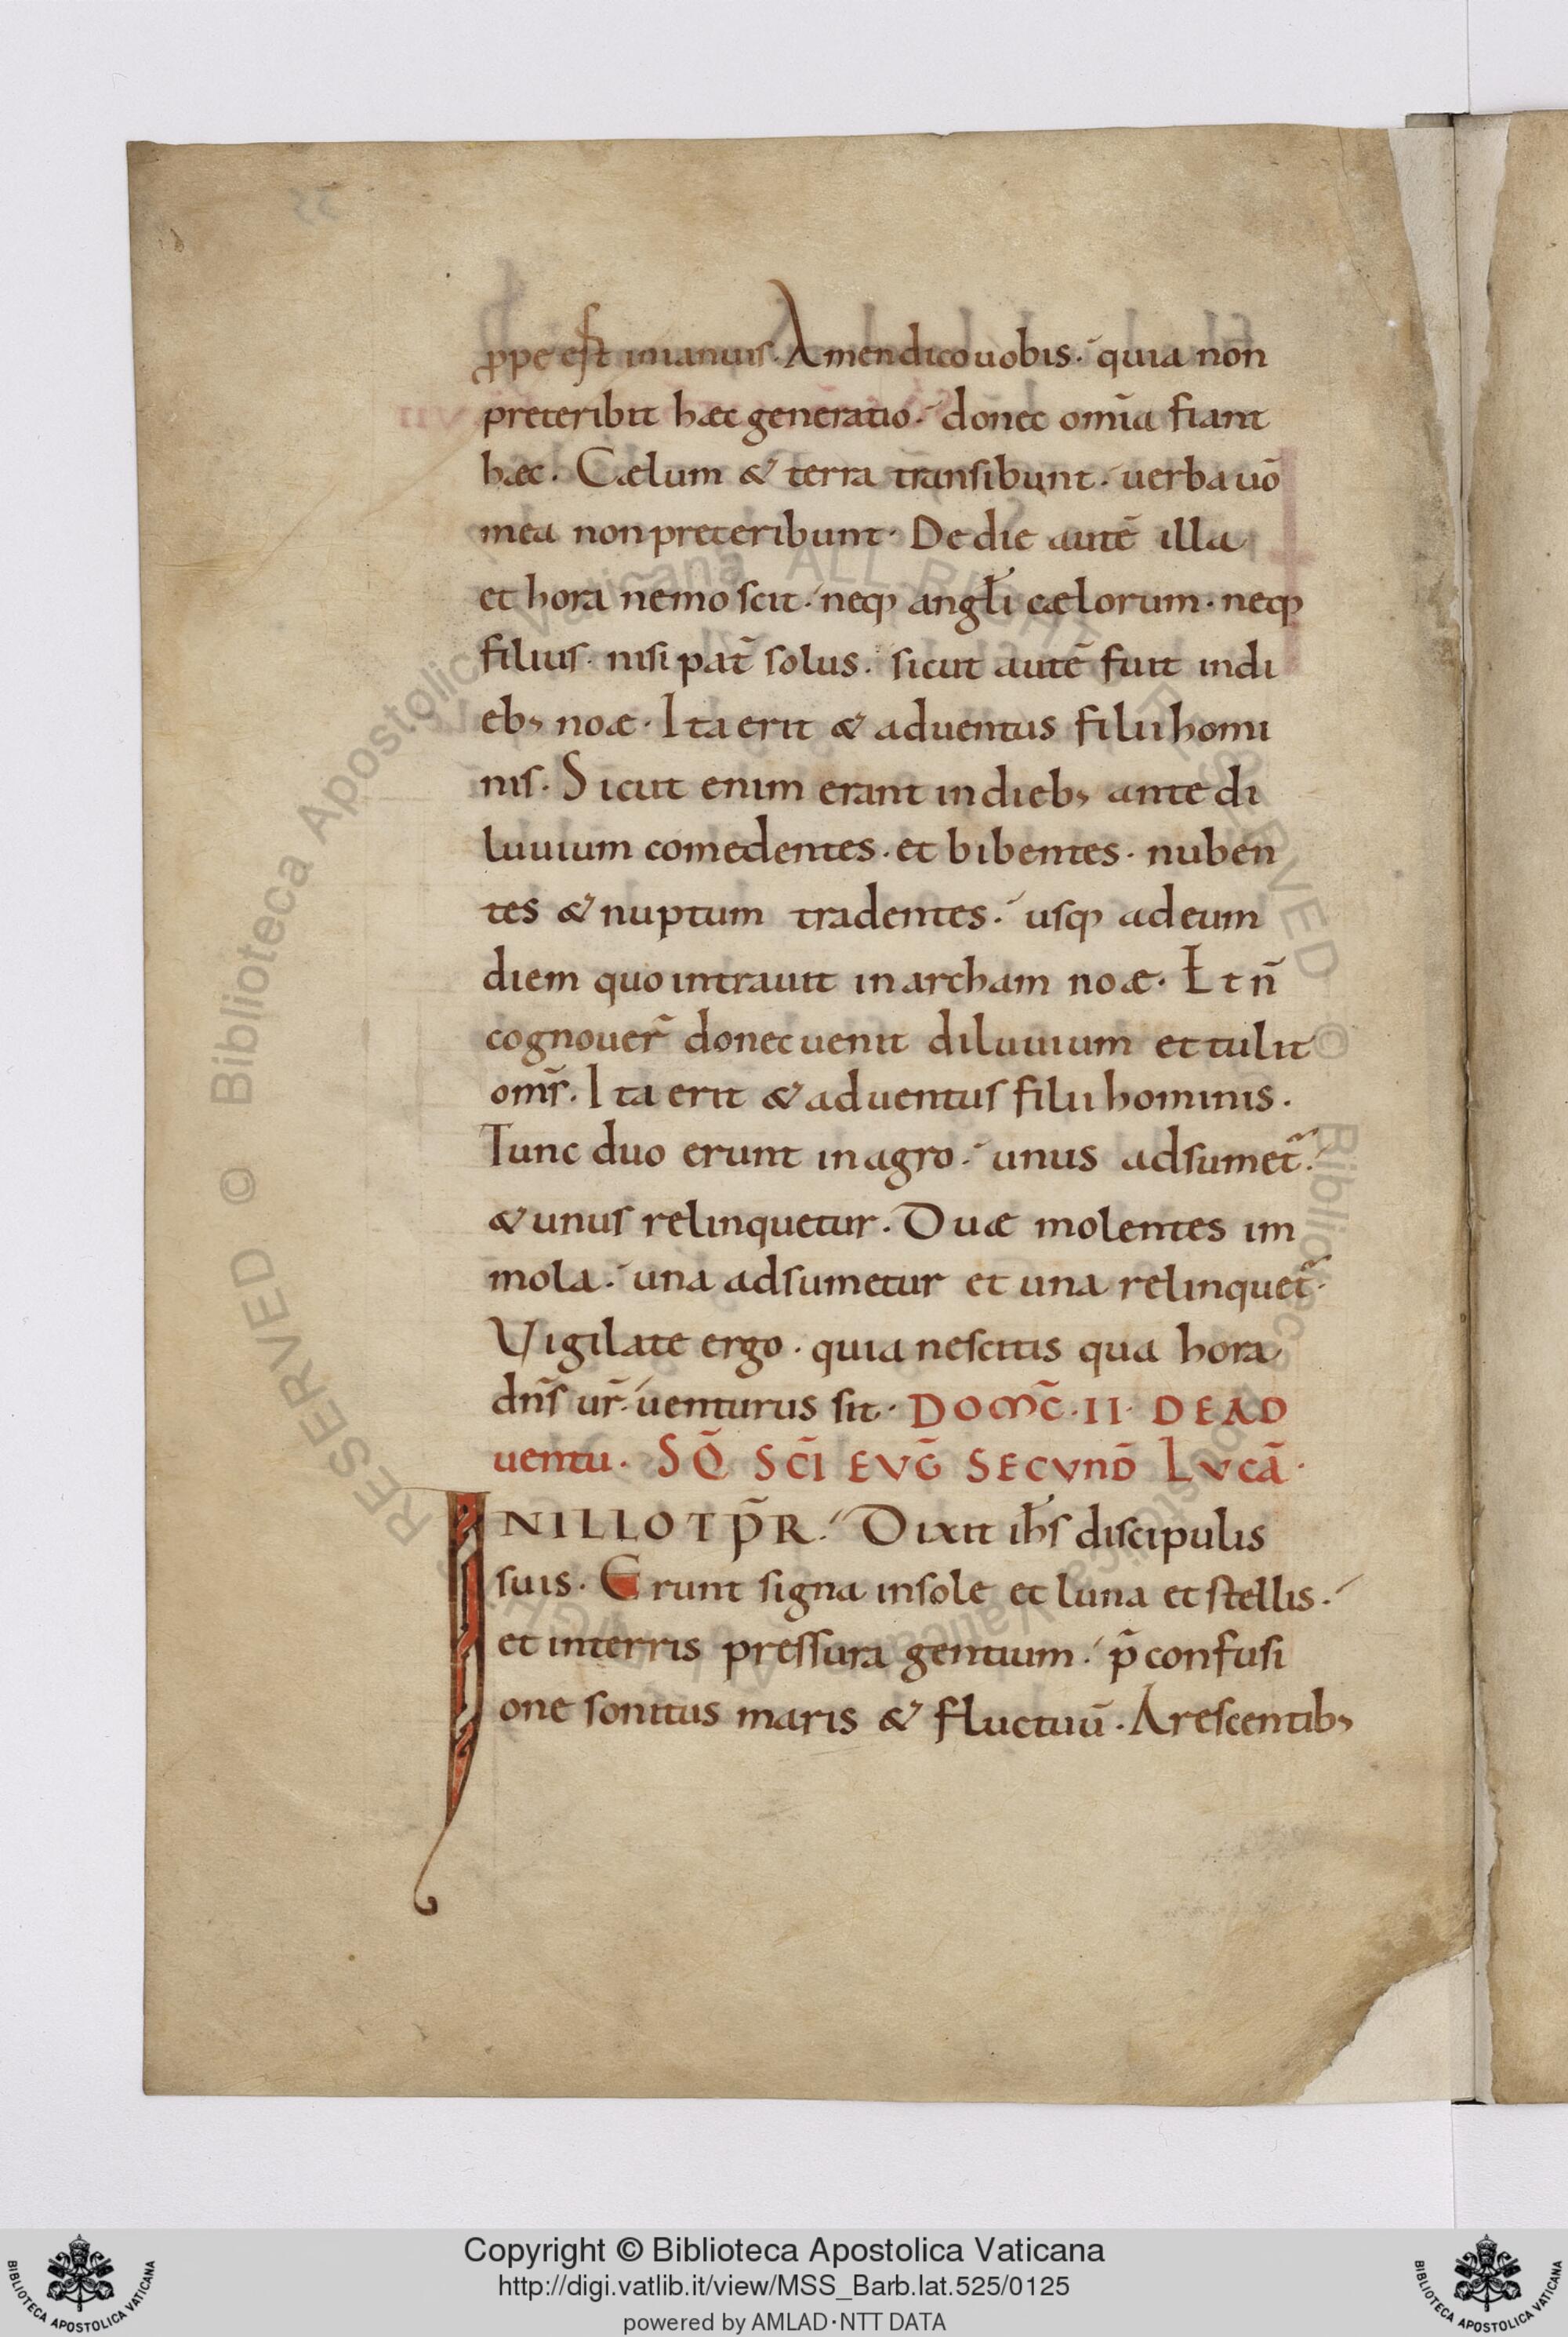 ꝓpe est inianuis. Amendico uobis. quia non
preteribit hæc generatio. donec om̄ia fiant
hæc. Cælum & terra transibunt. uerba uō
mea non preteribunt. De die autē illa
et hora nemo scit. neq; angłi cælorum. neq;
filius. nisi pat̄ solus. sicut autē fuit indi
eb; noæ. Ita erit & aduentus filii homi
nis. Sicut enim erant indieb; ante di
luuium comedentes. et bibentes. nuben
tes & nuptum tradentes. usq; adeum
diem quo intrauit in archam noæ. Et n̄
cognouer̄ donec uenit diluuium et tulit
om̄s. Ita erit & aduentus filii hominis.
Tunc duo erunt in agro. unus adsumet̄.
& unus relinquetur. Duæ molentes im
mola. una adsumetur et una relinquet̄.
Vigilate ergo. quia nescitis qua hora
dn̄s ur̄ uenturus sit. DOMC̄. II. DEAD
uentu. SQ̄ SC̄I EVḠ SECVND̄ LVCĀ.
INILLOTP̄R. Dixit ih̄s discipulis
suis. Erunt signa insole et luna et stellis.
et interris pressura gentium. p̄ confusi
one sonitus maris & fluctuū. Arescentib;
Biblioteca Apostolica Vaticana ALL RIGHTS RESERVED ©
Copyright © Biblioteca Apostolica Vaticana
http://digi.vatlib.it/view/MSS_Barb.lat.525/0125
powered by AMLAD·NTT DATA
BIBLIOTECA APOSTOLICA VATICANA
BIBLIOTECA APOSTOLICA VATICANA